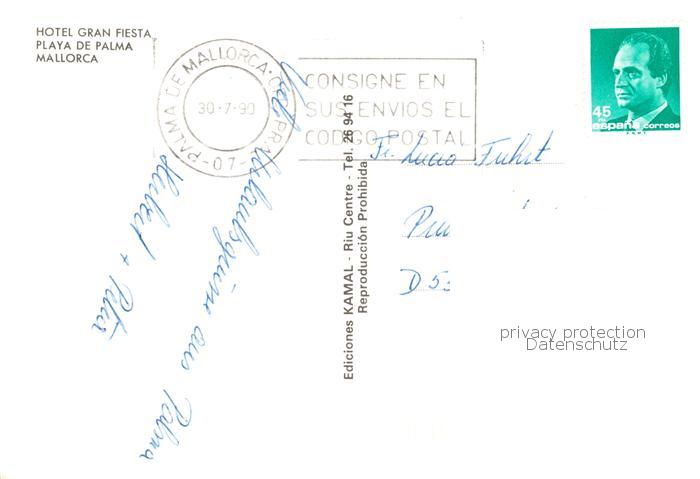 HOTEL GRAN FIESTA
PLAYA DE PALMA
MALLORCA
PALMA DE MALLORCA
30-7-90
-07-
CONSIGNE EN
SUS ENVIOS EL
CODIGO POSTAL
45
españa correos
Urlaubsgrüße aus Palma
Hubert +
Ediciones KAMAL - Riu Centre - Tel. 26 94 16
Reproducción Prohibida
Fr.
D 5
privacy protection
Datenschutz